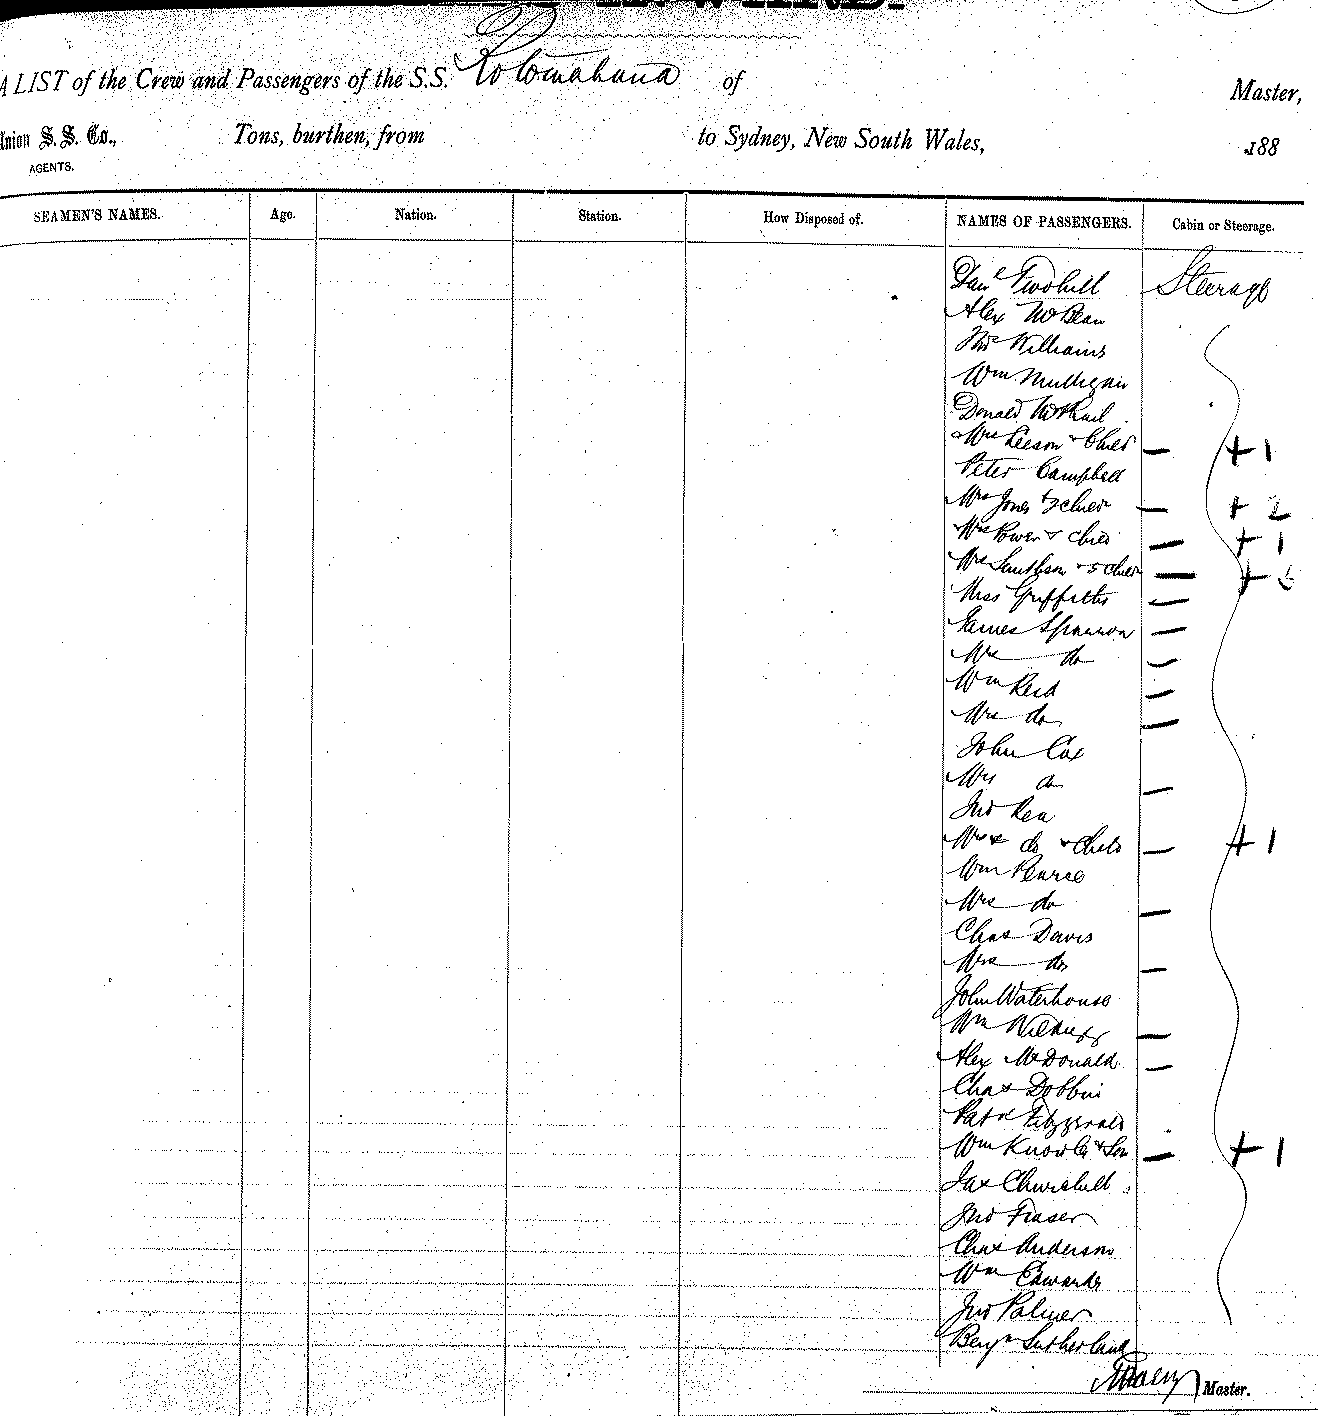 A LIST of the Crew and Passengers of the S.S. Rotomahana of Master,
Union S. S. Co., Tons, burthen, from to Sydney, New South Wales, 188
AGENTS.
SEAMEN'S NAMES. Age. Nation. Station. How Disposed of. NAMES OF PASSENGERS. Cabin or Steerage.
Danl Twohill Steerage
Alex McBean
Williams
Wm Mulligan
Donald McPhail
Mrs Leeson + Child + 1
Peter Campbell
Mrs Jones + 2 + 2
Mrs Power + child + 1
Mrs + 5 +
Miss Griffiths
James
Mrs do
Wm Reid
Mrs do
John Cox
Mrs do
Jno Rea
Mrs do + Child + 1
Wm Pearce
Mrs do
Chas Davis
Mrs do
John Waterhouse
Wm
Alex McDonald
Chas Dobbin
Patk Fitzgerald
Wm Knowles + Son + 1
Jas Churchill
Jno Fraser
Chas Anderson
Wm Edwards
Jno Palmer
Benjn Sutherland
Master.